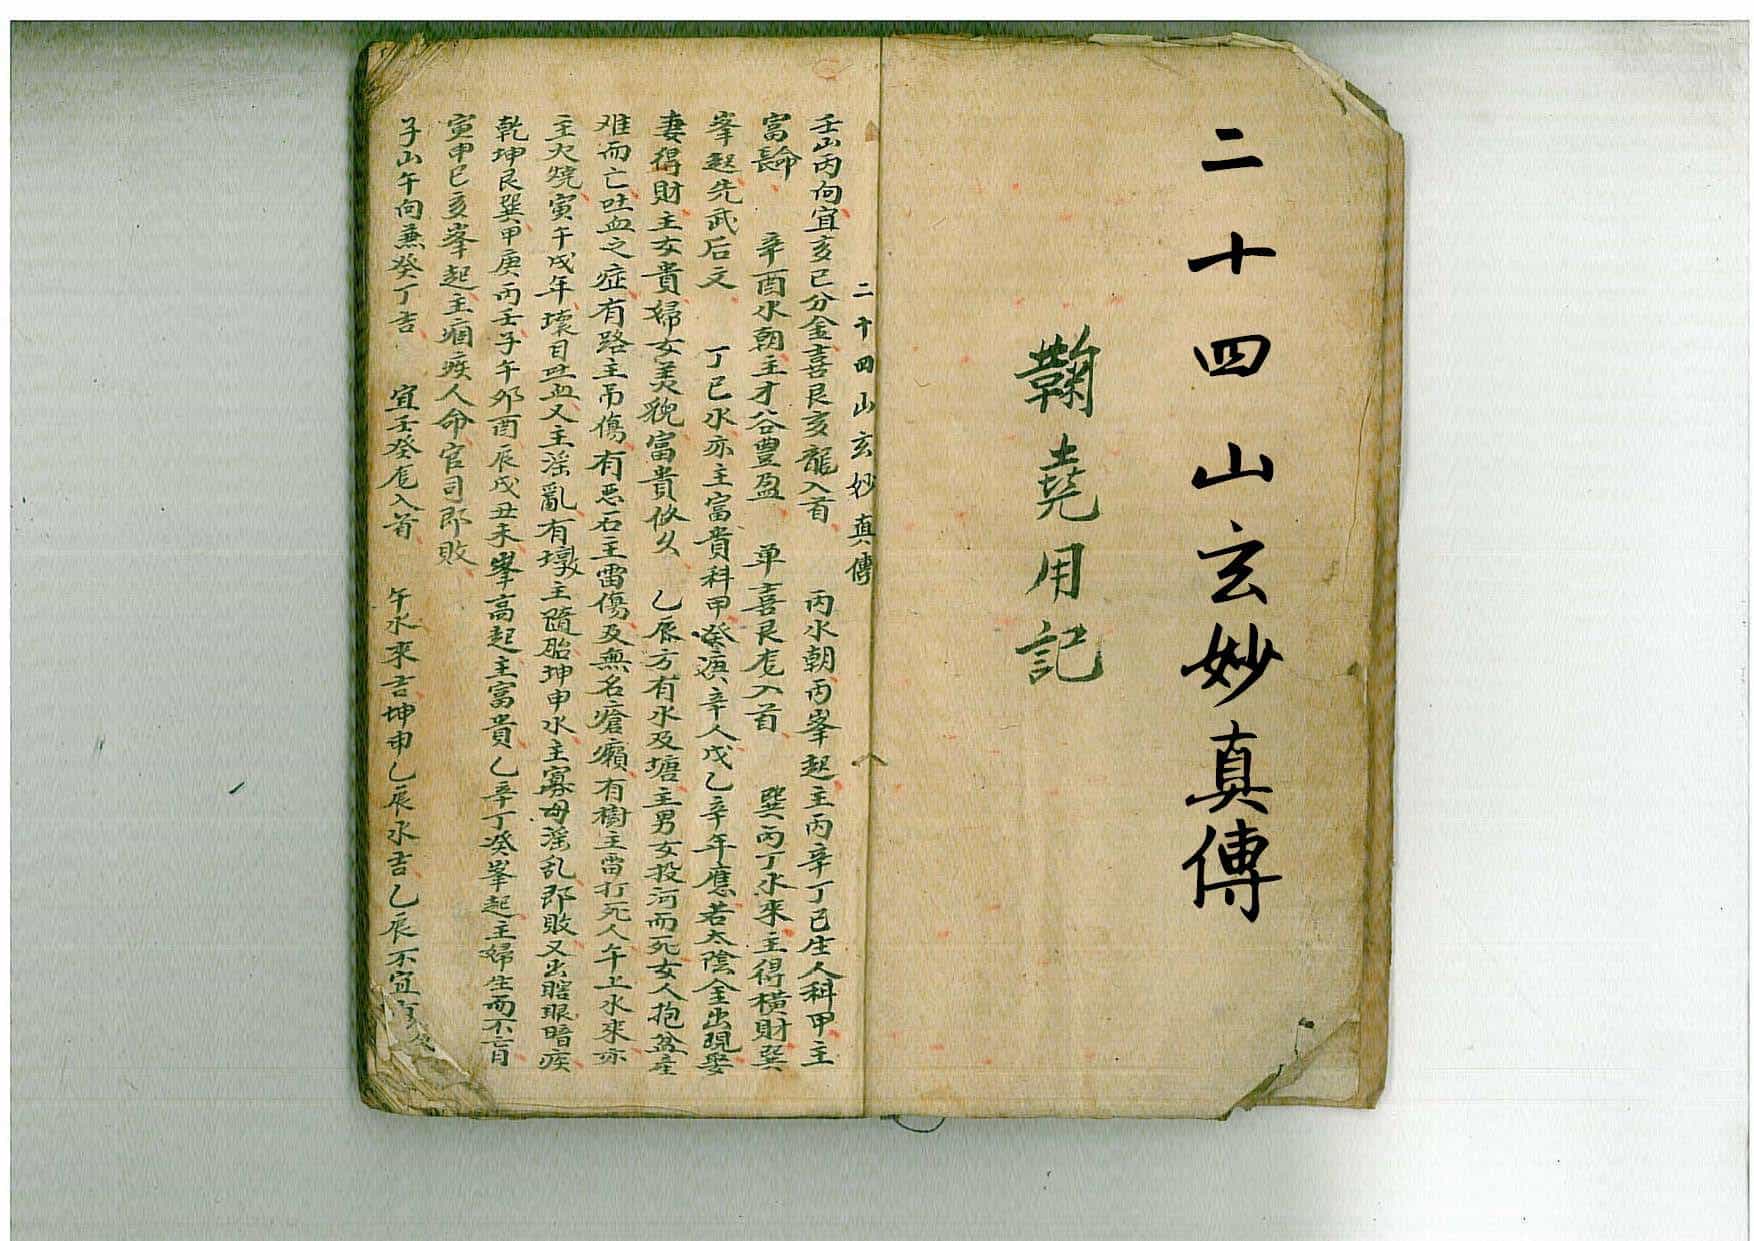 二十四山玄妙真傳
鞠堯用記
二十四山玄妙真傳
壬山丙向宜亥巳分金喜艮亥龍入首 丙水朝丙峯起主丙辛丁巳生人科甲主
富長命 辛酉水朝主才谷豐盈 单喜艮龙入首 巽丙丁水來主得橫財巽
峯起先武后文 丁巳水亦主富貴科甲癸演辛人戊乙辛年應若太陰金出現娶
妻得財主女貴婦女美貌富貴攸久 乙辰方有水及塘主男女投河而死女人抱盆產
难而亡吐血之症有路主吊傷有惡石主雷傷及無名瘡癩有樹主雷打死人午上水來亦
主火燒寅午戌年壞目吐血又主淫亂有墩主隨胎坤申水主寡母淫乱即敗又出瞎眼暗疾
乾坤艮巽甲庚丙壬子午卯酉辰戌丑未峯高起主富貴乙辛丁癸峯起主婦生而不言
寅申巳亥峯起主痼疾人命官司即敗
子山午向兼癸丁吉 宜壬癸龙入首 午水來吉坤申乙辰水吉乙辰不宜